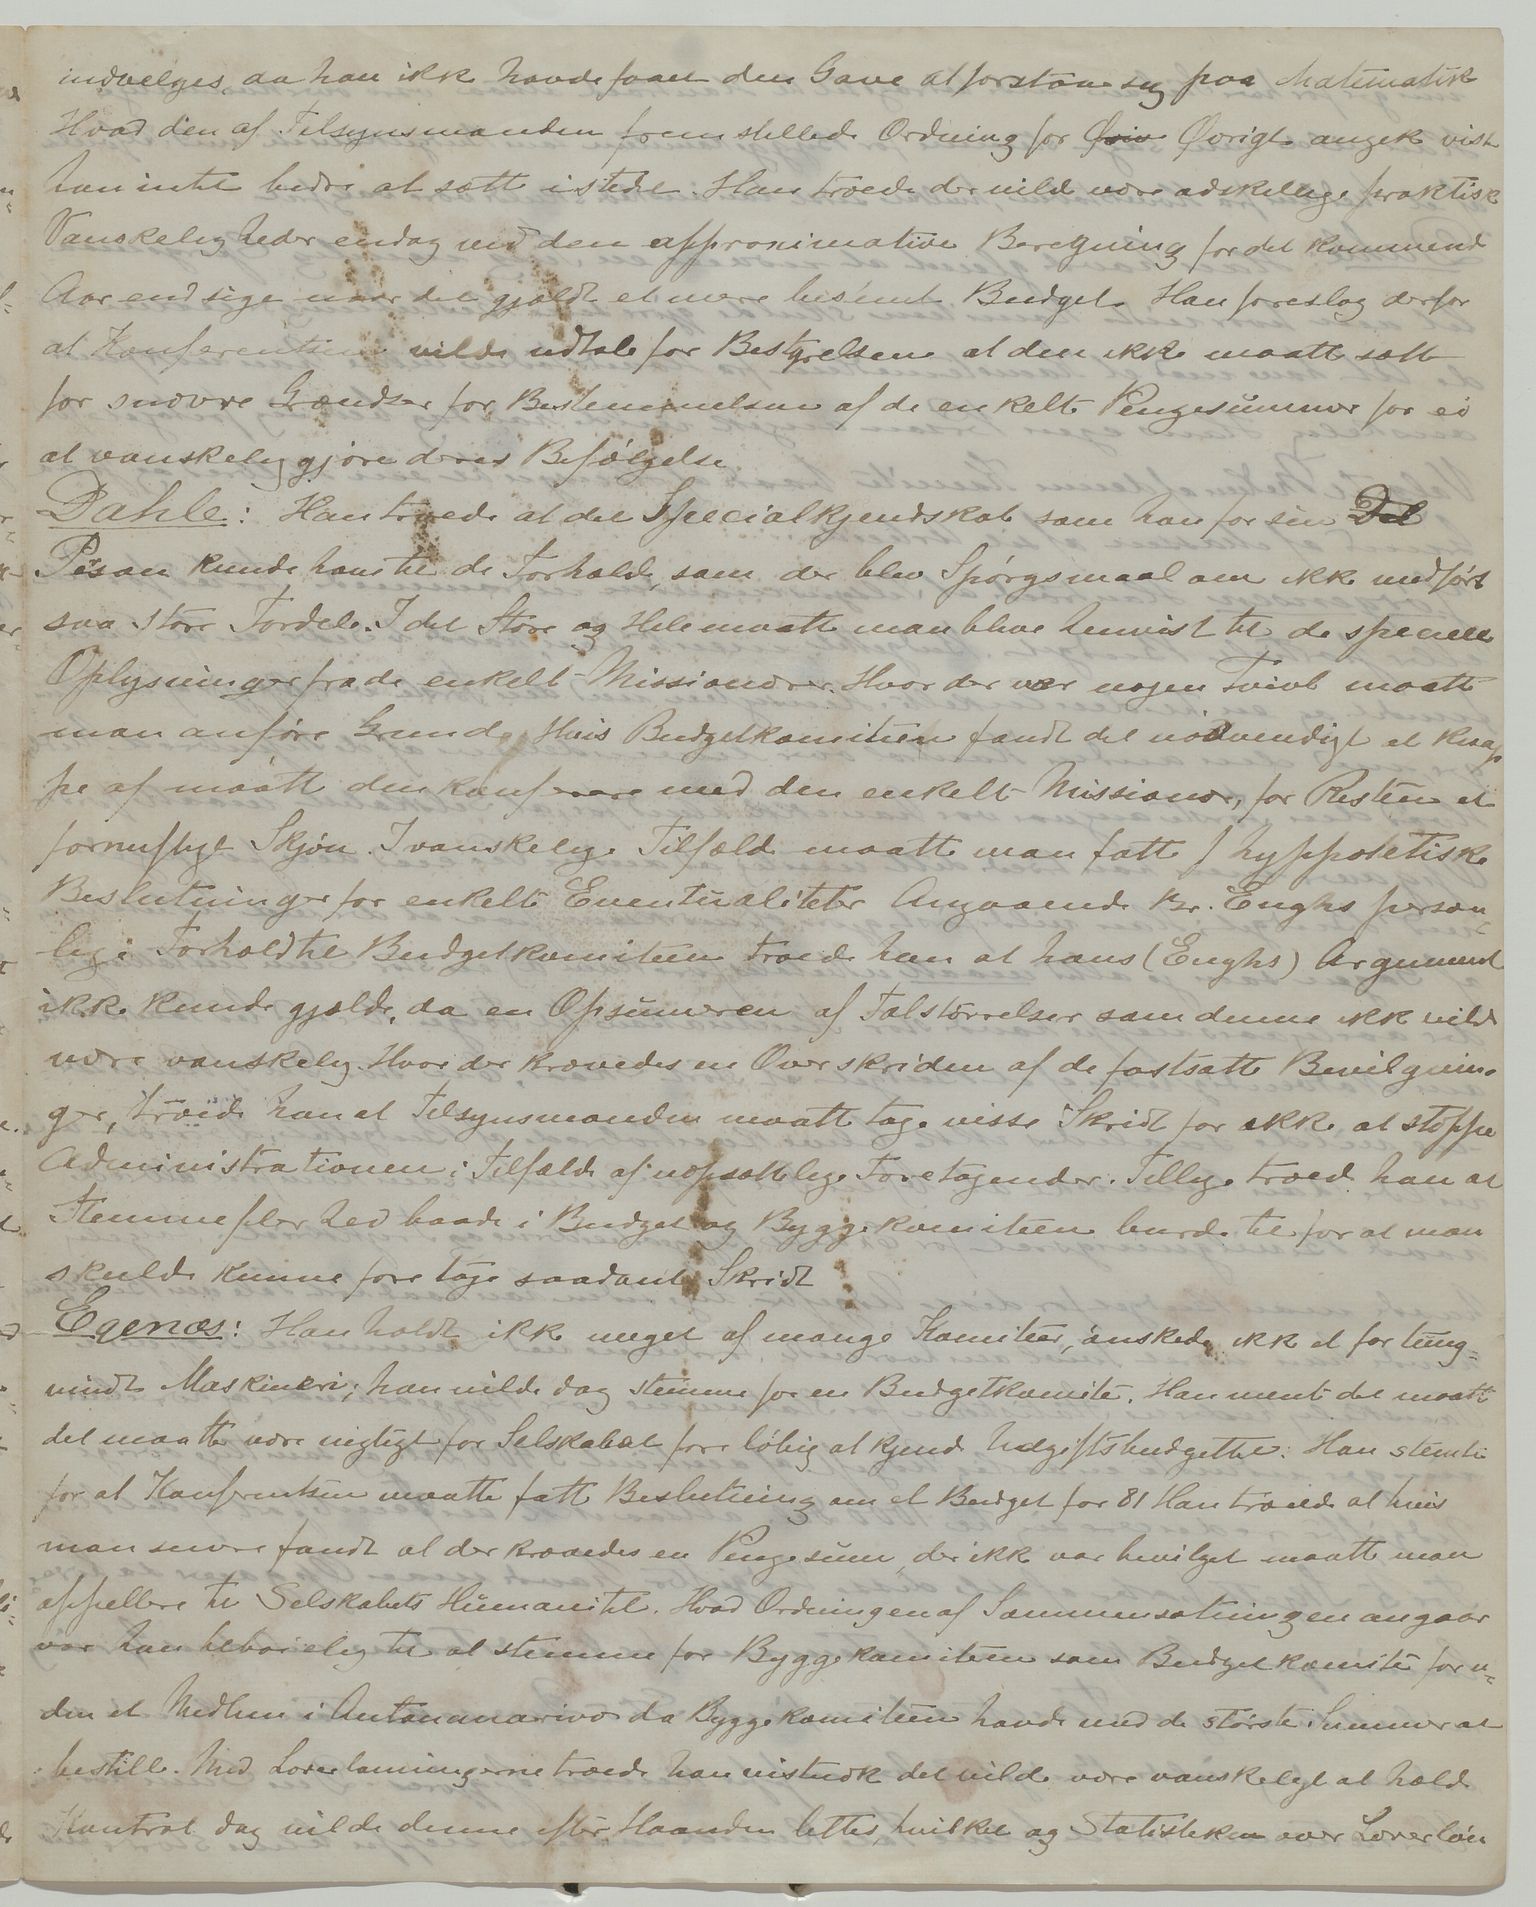 indvælges, da han ikke havde faaet den Gave at forstaae sig paa Matematik
Hvad den af Tilsynsmanden fremstillede Ordning for Øvri Øvrigt angik viste
han intet bedre at sætte istedet. Han troede der vilde være adskillige praktiske
Vanskeligheder endog ved den approximative Beregning for det kommende
Aar endsige naar det gjældt et mere bestemt Budget. Han foreslog derfor
at Konferentsen vilde udtale for Bestyrelsen at den ikke maatte sætte
for snævre Grændser for Bestemmelsen af de enkelte Pengesummer for ei
at vanskeliggjøre deres Befølgelse.
Dahle: Han troede at det Specialkjendskab som han for sin Del
Person kunde have til de Forholde, som der blev Spørgsmaal om ikke medførte
saa store Fordele. I det Store og Hele maatte man blive henvist til de specielle
Oplysninger fra de enkelte Missionærer. Hvor der var nogen Tvivl maatte
man anføre Grunde. Hvis Budgetkomiteen fandt det nødvendigt at knap
pe af maatte den konferere med den enkelte Missionær, for Resten et
fornuftigt Skjøn. I vanskelige Tilfælde maatte man fatte hyppotetiske
Beslutninger for enkelte Eventualiteter. Angaaende Br. Enghs person-
lige Forhold til Budgetkomiteen troede han at hans (Enghs) Argument
ikke kunde gjælde, da en Opsummeren af Talstørrelser som denne ikke vilde
være vanskelig. Hvor der krævedes en Overskriden af de fastsatte Bevilgnin-
ger, troede han at Tilsynsmanden maatte tage visse Skridt for ikke at stoppe
Administrationen i Tilfælde af uopsættelige Foretagender. Tillige troede han at
Stemmeflerhed baade i Budget og Byggekomiteen burde til for at man
skulde kunne foretage saadant Skridt
Egenæs: Han holdt ikke meget af mange Komiteer, ønskede ikke et for tung-
vindt Maskineri; han vilde dog stemme for en Budgetkomite. Han mente det maatte
det maatte være vigtigt for Selskabet foreløbig at kjende Udgiftsbudgettet. Han stemte
for at Konferentsen maatte fatte Beslutning om et Budget for 81 Han troede at hvis
man senere fandt at der krævedes en Pengesum, der ikke var bevilget maatte man
appellere til Selskabets Humanitet. Hvad Ordningen af Sammensætningen angaar
var han tilbøielig til at stemme for Byggekomiteen som Budgetkomite foru-
den et Medlem i Antananarivo da Byggekomiteen havde med de største Summer at
bestille. Med Lærerlønningerne troede han vistnok det vilde være vanskeligt at holde
Kontrol dog vilde denne efter Haanden lettes, hvilket og Statistiken over Lærerløn